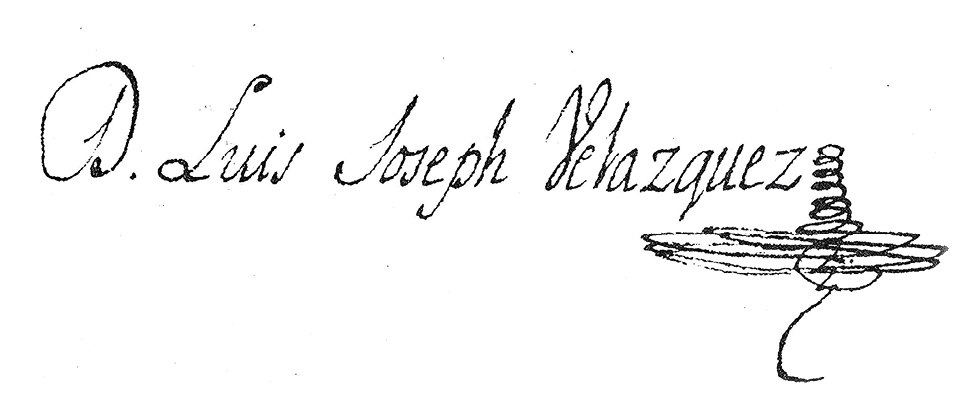 D. Luis Joseph Velazquez